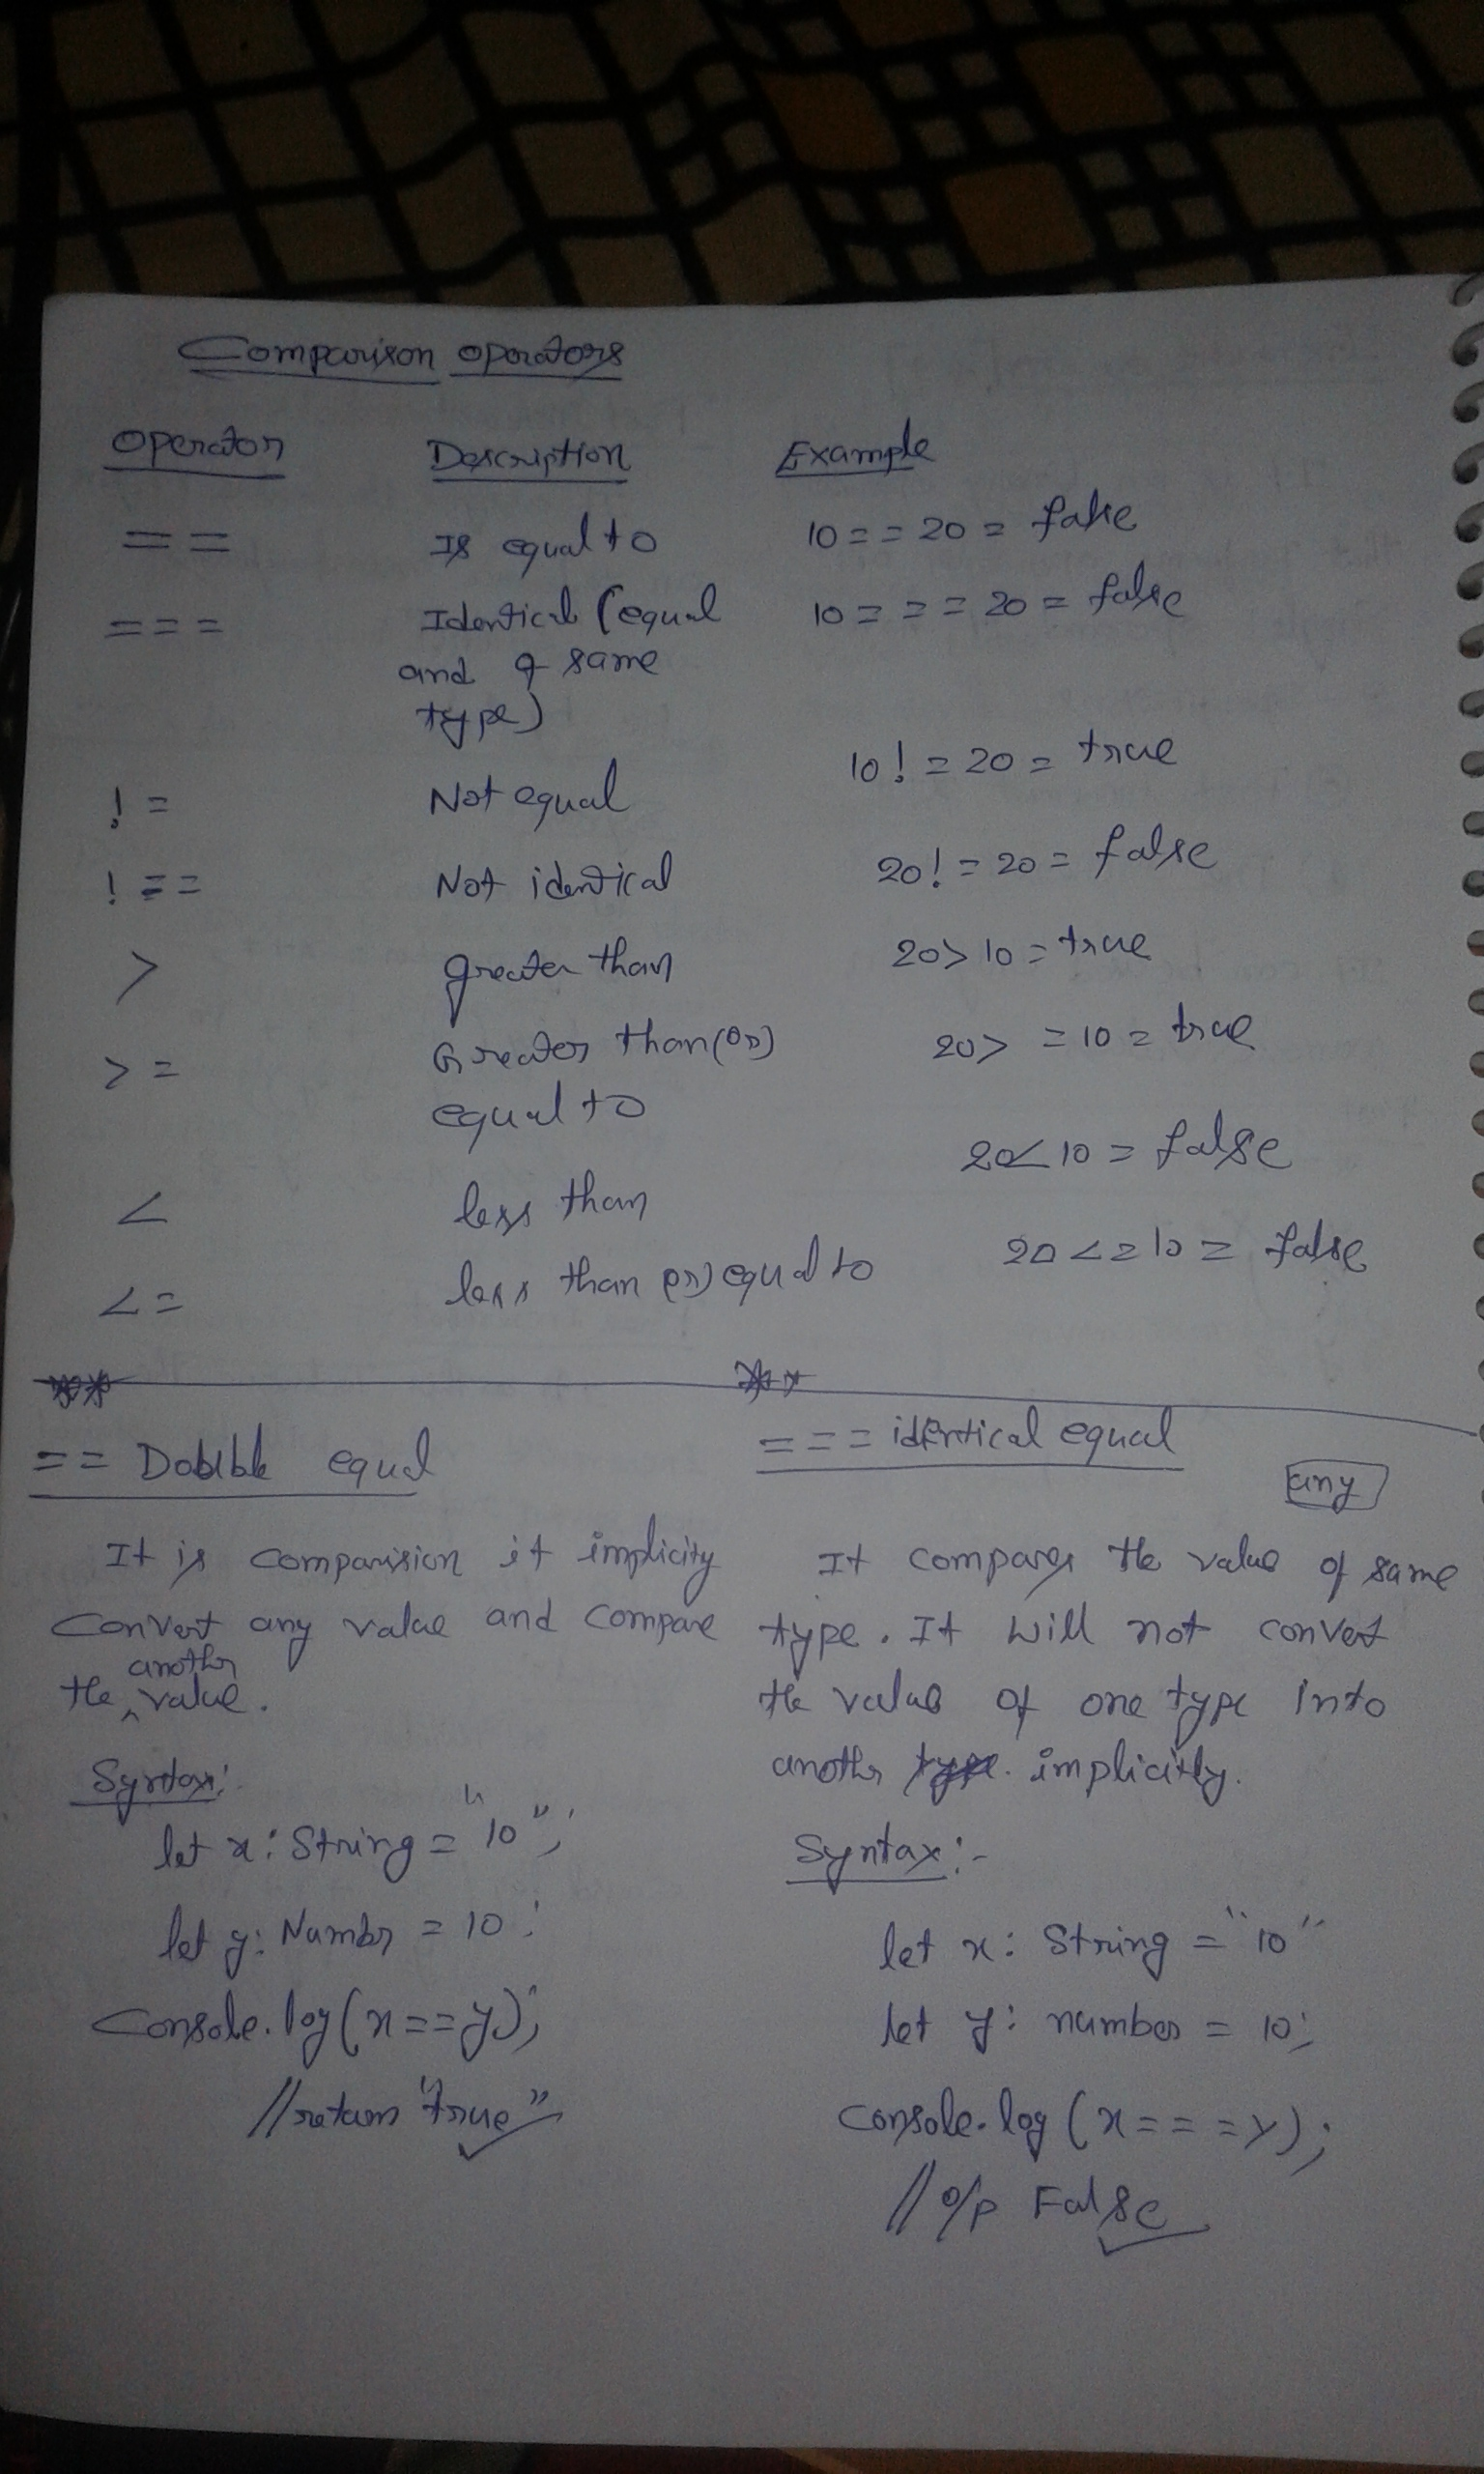 Comparison operators
Operator Description Example
== Is equal to 10 == 20 = false
=== Identical (equal 10 === 20 = false
and of same
type)
!= Not equal 10! = 20 = true
!== Not identical 20! = 20 = false
> greater than 20 > 10 = true
>= Greater than (or) 20 > = 10 = true
equal to
< less than 20 < 10 = false
<= less than (or) equal to 20 <= 10 = false
** **
== Double equal
It is comparision it implicity
Convert any value and compare
the another value.
Syntax:
let x: String = "10";
let y: Number = 10;
Console.log(x==y);
//return "true"
=== identical equal
any
It compares the value of same
type. It will not convert
the value of one type into
another implicitly.
Syntax:-
let x: String = "10"
let y: number = 10;
Console.log (x===y);
// o/p False